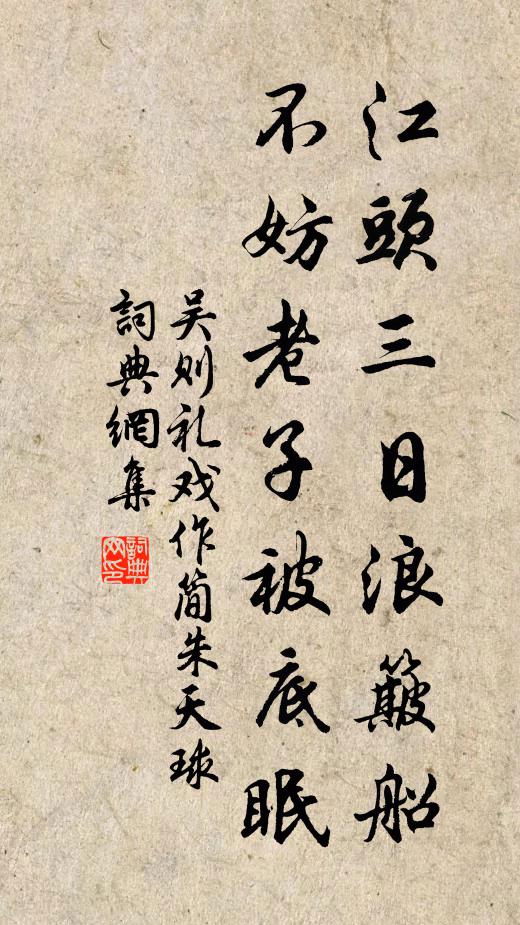 江頭三日浪簸船
不妨老子被底眠
吴则礼戏作简朱天球
詞典網集
詞典
网印